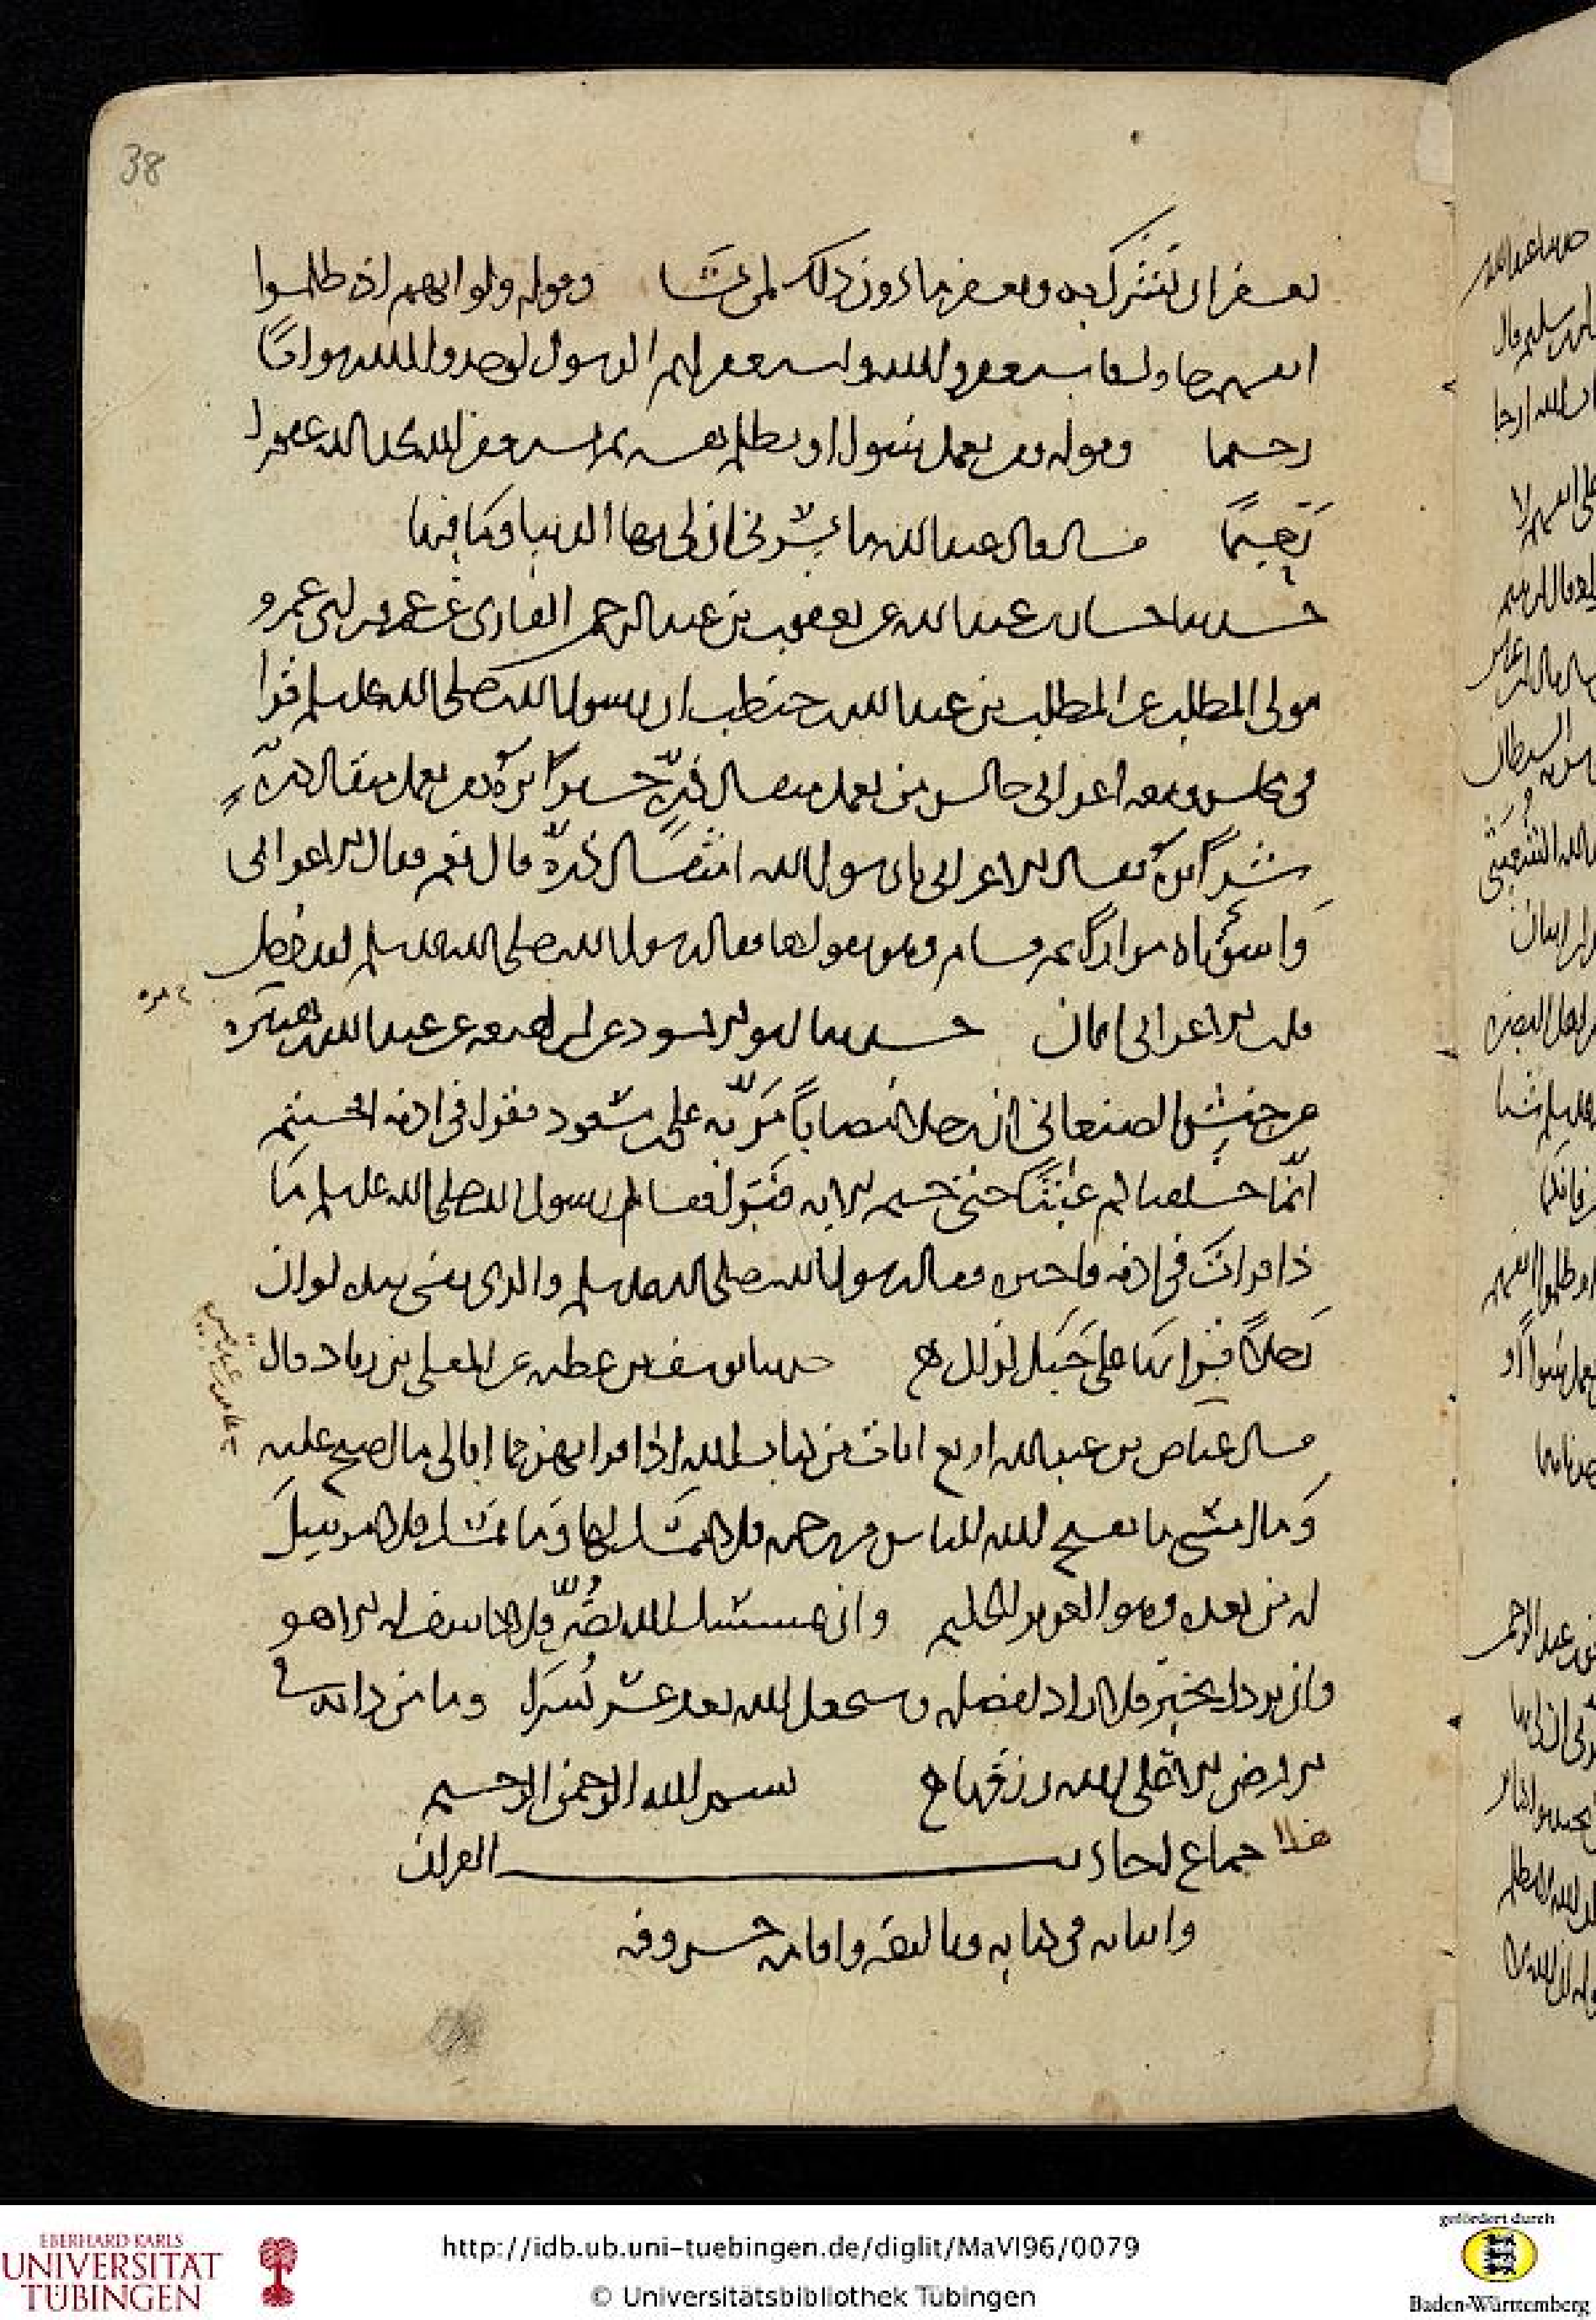 38
يغفر ان يشرك به ويغفر ما دون ذلك لمن يشا وقوله ولو انهم اذ ظلموا
انفسهم جاوك فاستغفروا الله واستغفر لهم الرسول لوجدوا الله توابا
رحيما وقوله ومن يعمل سوا او يظلم نفسه ثم يستغفر الله يجد الله غفورا
رحيما قال قال عبد الله ما يسرني ان لي بها الدنيا وما فيها
حدثنا حسان بن عبد الله عن يعقوب بن عبد الرحمن القاري عن عمرو بن ابي عمرو
مولى المطلب عن المطلب بن عبد الله بن حنطب ان رسول الله صلى الله عليه وسلم قرا
في مجلس ومعه اعرابي جالس من يعمل مثقال ذرة خيرا يره ومن يعمل مثقال ذرة
شرا يره فقال الاعرابي يا رسول الله امثقال ذرة قال نعم فقال الاعرابي
واسوتاه مرارا ثم قام وهو يقولها فقال رسول الله صلى الله عليه وسلم لقد دخل
قلب الاعرابي الايمان حدثنا ابو الاسود عن ابن لهيعة عن عبد الله بن هبيرة
عن حنش الصنعاني ان رجلا مصابا مر به على بن مسعود فقرا في اذنه افحسبتم
انما خلقناكم عبثا حتى ختم الاية فبرا فقال رسول الله صلى الله عليه وسلم ما
ذا قرات في اذنه فاخبره فقال رسول الله صلى الله عليه وسلم والذي نفسي بيده لو ان
رجلا قراها على جبل لزال حدثنا يوسف بن عطية عن المعلى بن زياد قال
قال عامر بن عبد الله اربع ايات من كتاب الله اذا قراتهن فما ابالي ما اصبح عليه
وما امسي ما يفتح الله للناس من رحمة فلا ممسك لها وما يمسك فلا مرسل
له من بعده وهو العزيز الحكيم وان يمسسك الله بضر فلا كاشف له الا هو
وان يردك بخير فلا راد لفضله وسيجعل الله بعد عسر يسرا وما من دابة في
الارض الا على الله رزقها بسم الله الرحمن الرحيم
هذا جماع احاديث القران
واثباته في كتابه وتاليفه واقامة حروفه
http://idb.ub.uni-tuebingen.de/diglit/MaVI96/0079
© Universitätsbibliothek Tübingen
EBERHARD KARLS
UNIVERSITÄT
TÜBINGEN
gefördert durch
Baden-Württemberg